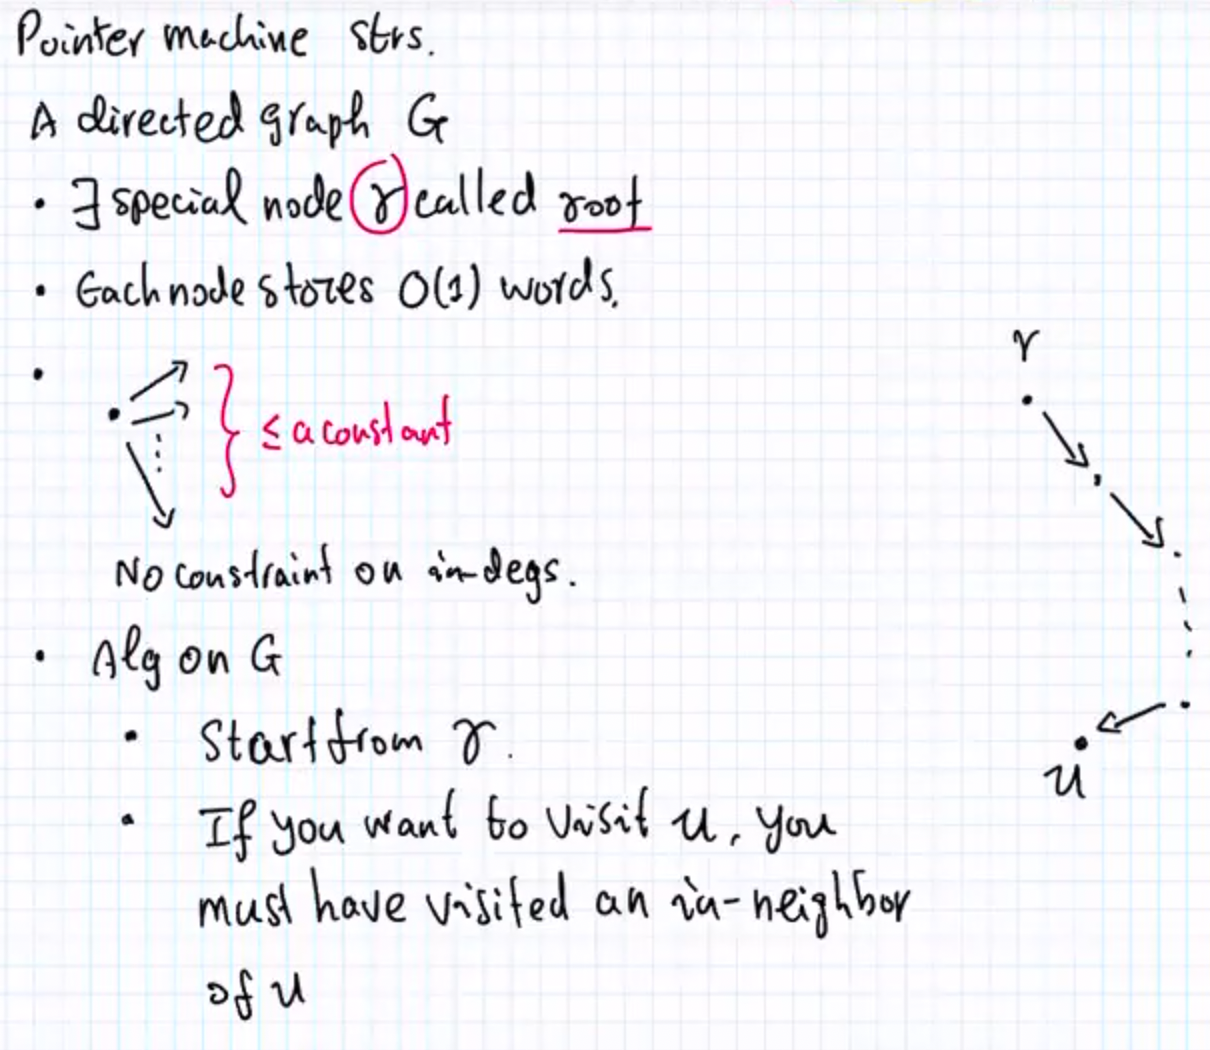 Pointer machine strs.
A directed graph G
• ∃ special node r called root
• Each node stores O(1) words.
r
•
≤ a constant
No constraint on in-degs.
• Alg on G
• Start from r.
u
• If you want to visit u, you
must have visited an in-neighbor
of u